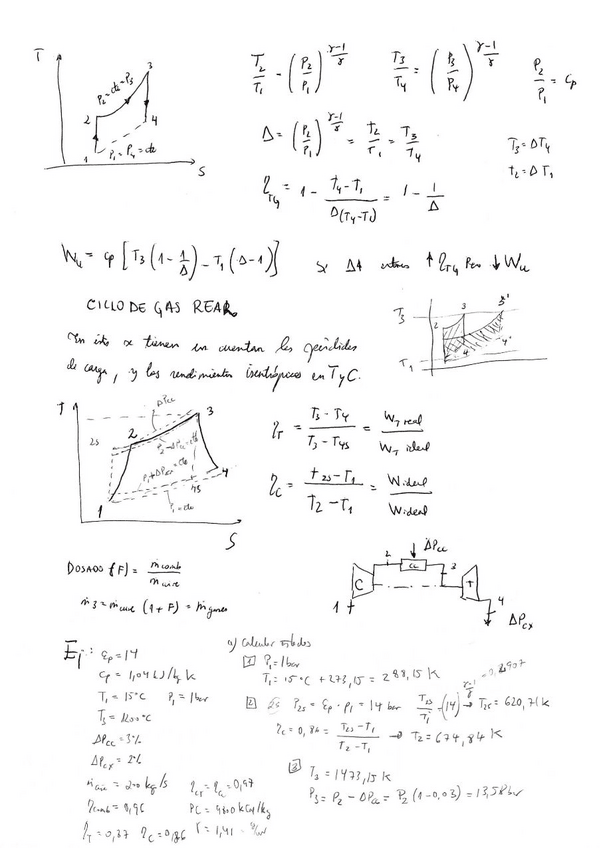 T
3
P₂=cte=P₃
2
4
1
P₁=P₄=cte
S
T₂/T₁ = (P₂/P₁)^(γ-1/γ)
T₃/T₄ = (P₃/P₄)^(γ-1/γ)
P₂/P₁ =
Δ = (P₂/P₁)^(γ-1/γ) = t₂/T₁ = T₃/T₄
T₃ = ΔT₄
t₂ = ΔT₁
η_TG = 1 - (T₄-T₁)/(Δ(T₄-T₁)) = 1 - 1/Δ
Wu = cp [T₃(1 - 1/Δ) - T₁(Δ-1)]
Si Δ↑ entonces ↑ η_TG Pero ↓ Wu
CICLO DE GAS REAL
En este se tienen en cuenta las pérdidas
de carga, y los rendimientos isentrópicos en T y C.
T₃
3
3'
2
4
4'
T₁
T
ΔPcc
2
3
2s
P₂-ΔPcc=cte
P₁+ΔPcx=cte
4
4s
P₁=cte
1
S
η_T = (T₃-T₄)/(T₃-T₄s) = W_T real/W_T ideal
η_C = (t₂s-T₁)/(T₂-T₁) = Wideal/Wideal
DOSADO (F) = ṁcomb/ṁaire
ṁ₃ = ṁaire (1+F) = ṁgases
ΔPcc
2
cc
3
C
T
1
4
ΔPcx
Ej: εp = 14
cp = 1,04 kJ/kg K
T₁ = 15°C P₁ = 1bar
T₃ = 1200°C
ΔPcc = 3%
ΔPcx = 2%
ṁaire = 200 kg/s
= 0,97
ηcomb = 0,96
PC = 9800 kCal/kg
η_T = 0,87 η_C = 0,86 γ = 1,41
a) Calcular estados
1 P₁ = 1bar
T₁ = 15°C + 273,15 = 288,15 K
2 P₂s = εp · P₁ = 14 bar
T₂s/T₁ = (14)^(γ-1/γ = 0,2907) → T₂s = 620,71 K
η_C = 0,86 = (T₂s-T₁)/(T₂-T₁) → T₂ = 674,84 K
3 T₃ = 1473,15 K
P₃ = P₂ - ΔPcc = P₂ (1-0,03) = 13,58 bar